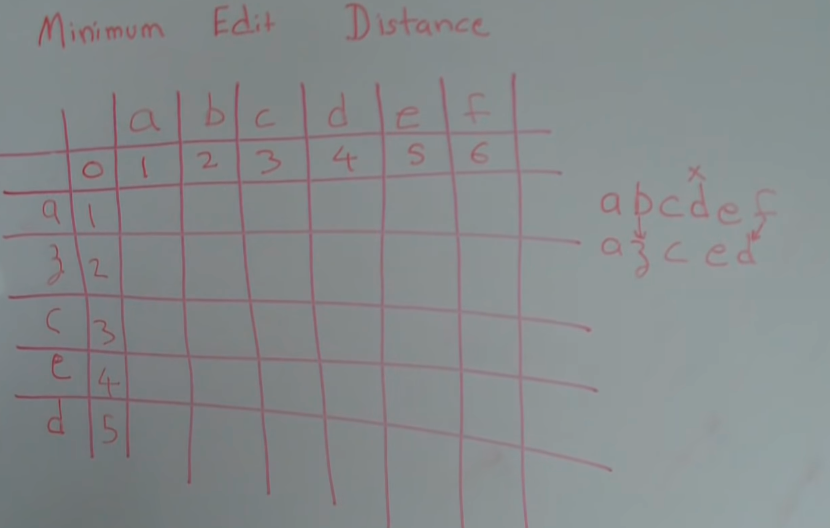 Minimum Edit Distance
a b c d e f
0 1 2 3 4 5 6
a 1
z 2
c 3
e 4
d 5
x
abcdef
azced